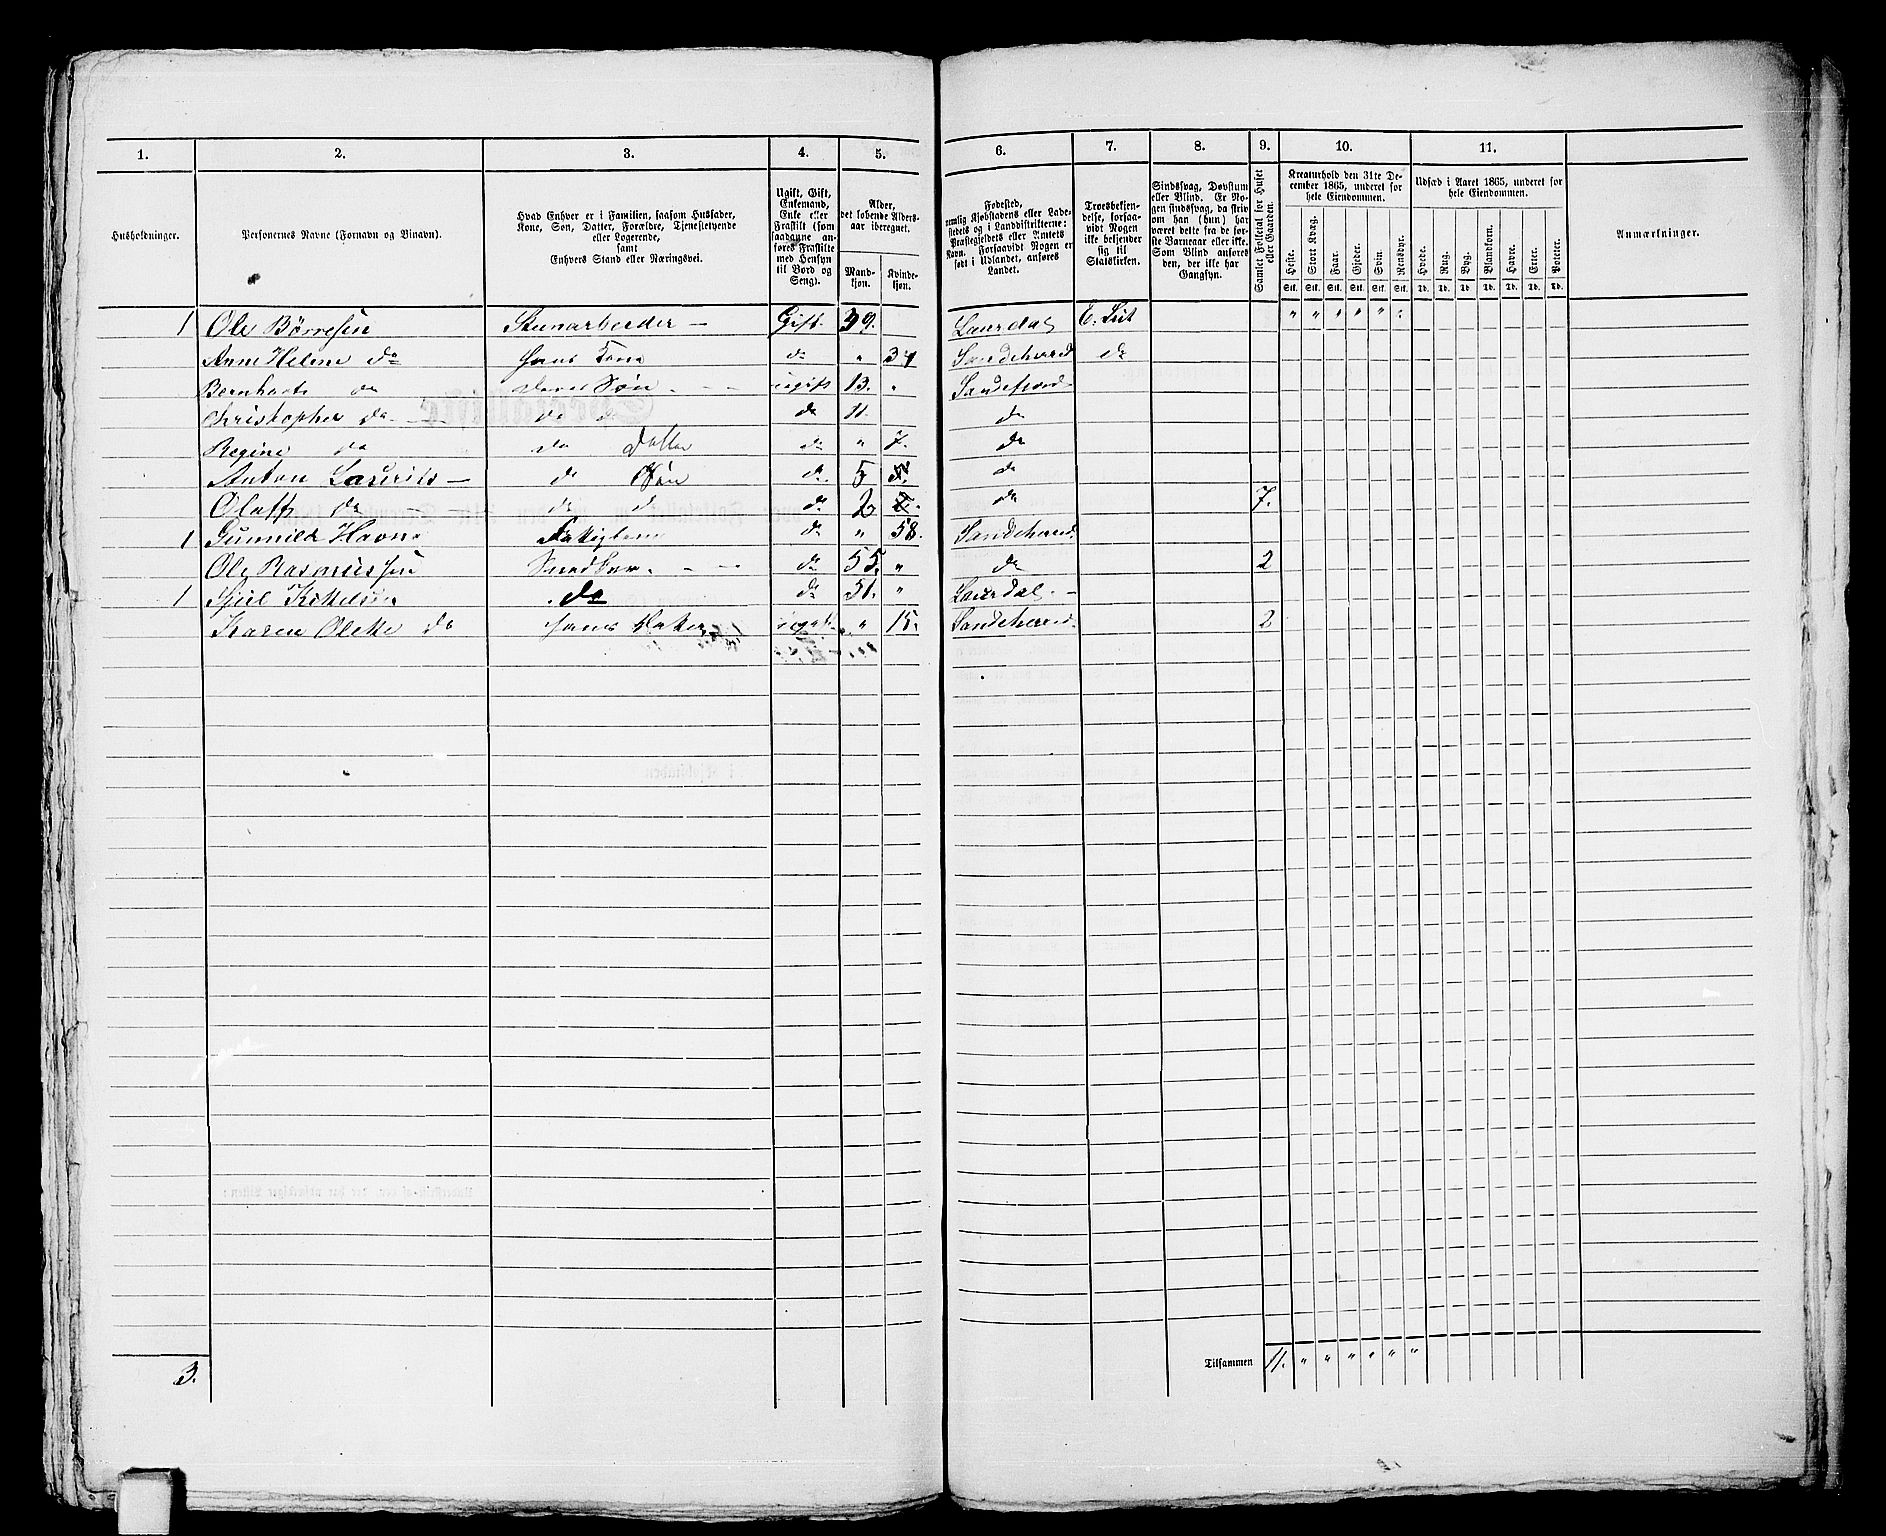 1. 2. 3. 4. 5. 6. 7. 8. 9. 10. 11.
Husholdninger.
Personernes Navne (Fornavn og Tilnavn).
Hvad Enhver er i Familien, saasom Husfader,
Kone, Søn, Datter, Forældre, Tjenestetyende
eller Logerende,
samt
Enhvers Stand eller Næringsvei.
Ugift, Gift,
Enkemand,
Enke eller
Fraskilt (som
saadanne an-
føres Fraskilte
med Hensyn
til Bord og
Seng).
Alder,
det løbende Alders-
aar iberegnet.
Mand-
kjøn.
Kvinde-
kjøn.
Fødested,
nemlig Kjøbstadens eller Lade-
stedets og i Landdistrikterne:
Præstegjeldets eller Amtets
Navn. Forsaavidt Nogen er
født i Udlandet, anføres
Landet.
Troesbekjen-
delse, forsaa-
vidt Nogen
ikke bekjender
sig til
Statskirken.
Sindssvag, Døvstum
eller Blind. Er No-
gen sindssvag, da skriv
om han (hun) har
været dette fra de før-
ste Barneaar eller ikke.
Som Blind anføres
den, der ikke har
Gangsyn.
Samlet Folketal for Huset
eller Gaarden.
Kreaturhold den 31te De-
cember 1865, underet for
hele Eiendommen.
Heste. Stort Kvæg. Faar. Gjeder. Svin. Rensdyr.
Stk. Stk. Stk. Stk. Stk. Stk.
Udsæd i Aaret 1865, underet for
hele Eiendommen.
Hvede. Rug. Byg. Blandkorn. Havre. Erter. Poteter.
Td. Td. Td. Td. Td. Td. Td.
Anmærkninger.
1 Ole Børresen Steenarbeider – Gift. 39. Laurdal E. Lut " " " " " "
Anne Helene do hans Kone do " 34 Sandeherred do
Bernhart do deres Søn - - ugift 13. " Sandefjord
Christopher do - - do do do 11. do
Regine do do Datter do " 7. do
Anton Laurits – do Søn do 5 do
Oluff do - do do do 2 do 7.
1 Gunnild Havn do " 58. Sandeherred
Ole Rasmussen Snedker. - - do 55. " do 2
1 Kittelsen do do 51. " Laurdal. -
Karen Olette do hans Datter ugift. " 15. Sandeherred 2
3.
Tilsammen 11. " " " " " "